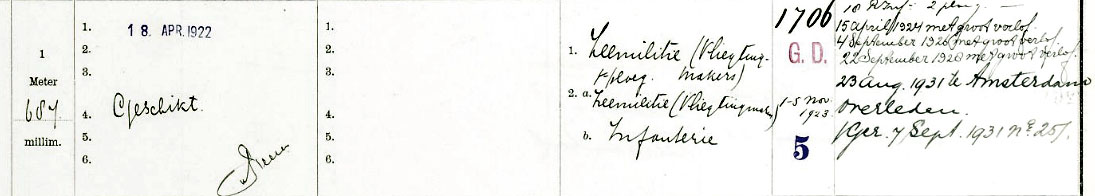 1
Meter
687
millim.
1.
18 APR. 1922
2.
3.
4. Geschikt.
5.
6.
1.
2.
3.
4.
5.
6.
1. Zeemilitie (Vliegtuig-
makers)
2. a. Zeemilitie (Vliegtuigmak.)
b. Infanterie
1706
G. D.
1-5 Nov.
1923
5
15 april 1924 met groot verlof.
4 September 1926 met groot verlof.
22 September 1928 met groot verlof.
23 aug. 1931 te Amsterdam
overleden.
(Ger. 7 Sept. 1931 nº 25).